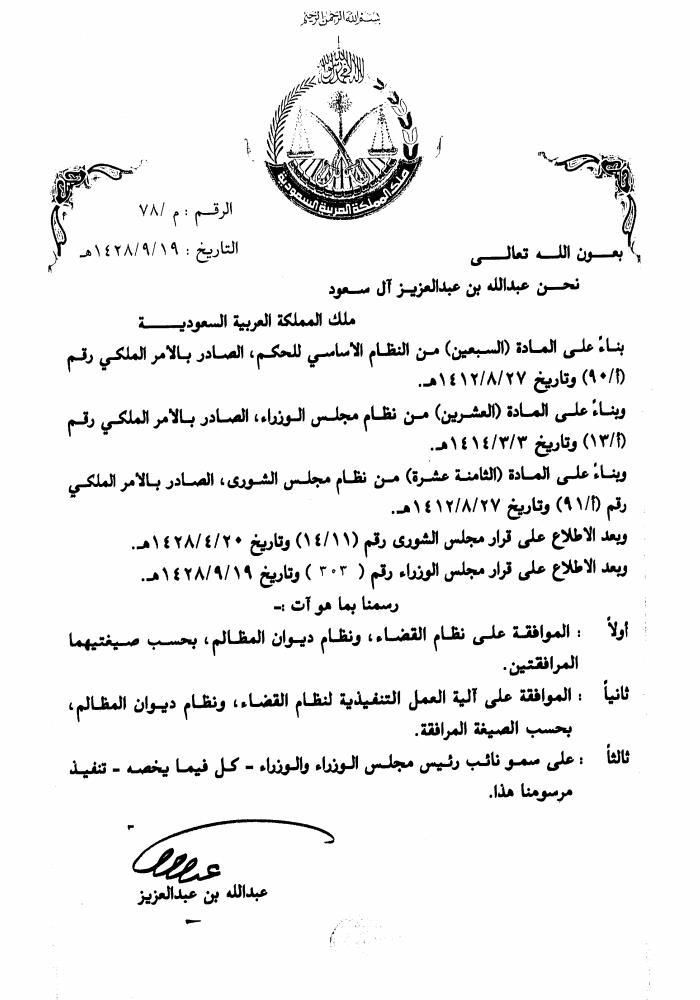 بسم الله الرحمن الرحيم
لا إله إلا الله محمد رسول الله
ملك المملكة العربية السعودية
الرقـم : م /٧٨
التاريخ : ١٤٢٨/٩/١٩هـ
بعـون اللـه تعالـى
نحـن عبدالله بن عبدالعزيز آل سعود
ملك المملكة العربية السعوديـة
بناءً على المادة (السبعين) من النظام الأساسي للحكم، الصادر بالأمر الملكي رقم
(أ/٩٠) وتاريخ ١٤١٢/٨/٢٧هـ.
وبناءً على المادة (العشرين) من نظام مجلس الوزراء، الصادر بالأمر الملكي رقم
(أ/١٣) وتاريخ ١٤١٤/٣/٣هـ.
وبناءً على المادة (الثامنة عشرة) من نظام مجلس الشورى، الصادر بالأمر الملكي
رقم (أ/٩١) وتاريخ ١٤١٢/٨/٢٧هـ.
وبعد الاطلاع على قرار مجلس الشورى رقم (١٤/١١) وتاريخ ١٤٢٨/٤/٢٠هـ.
وبعد الاطلاع على قرار مجلس الوزراء رقم ( ٣٠٣ ) وتاريخ ١٤٢٨/٩/١٩هـ.
رسمنا بما هو آت :-
أولاً : الموافقة على نظام القضاء، ونظام ديوان المظالم، بحسب صيغتيهما
المرافقتين.
ثانياً : الموافقة على آلية العمل التنفيذية لنظام القضاء، ونظام ديوان المظالم،
بحسب الصيغة المرافقة.
ثالثاً : على سمو نائب رئيس مجلس الوزراء والوزراء - كل فيما يخصه - تنفيذ
مرسومنا هذا.
عبدالله بن عبدالعزيز